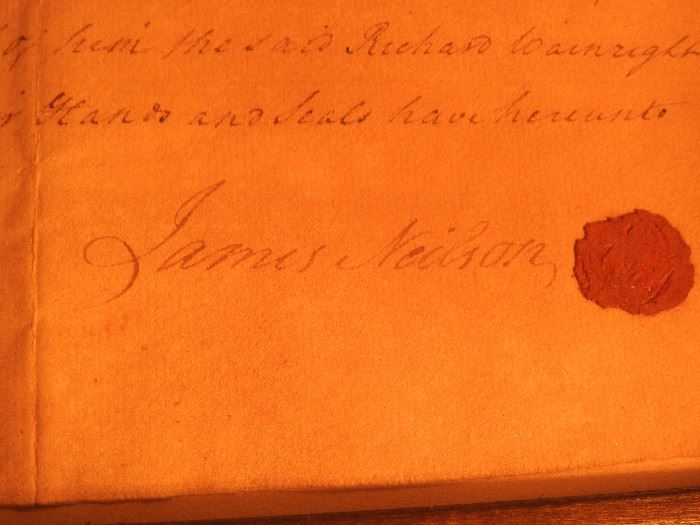 of him the said Richard Wainright
Hands and Seals have hereunto
James Neilson